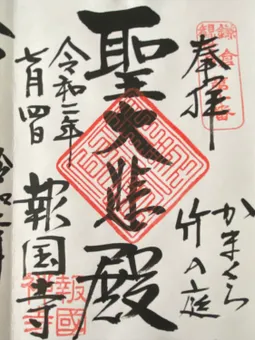 奉拝
かまくら
竹の庭
聖大悲殿
令和二年
七月四日
報国寺
報國
禅寺